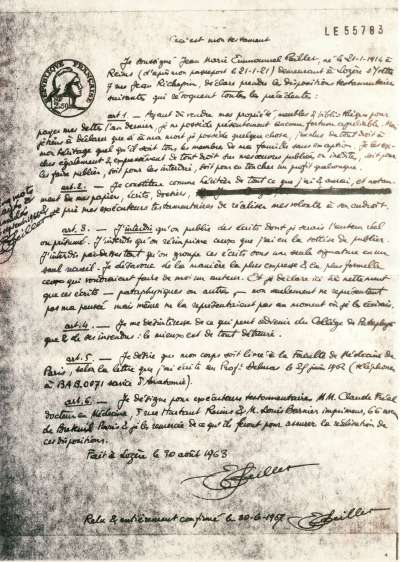 LE 55783
Ceci est mon testament
RÉPUBLIQUE FRANÇAISE
2.50
Je soussigné Jean Marie Emmanuel Peillet, né le 21-1-1914 à
Reims (d'après mon passeport le 21-1-21) demeurant à Lozère s/Yvette
7 rue Jean Richepin, déclare prendre les dispositions testamentaires
suivantes qui révoquent toutes les précédentes :
art 1. — Ayant dû vendre mes propriétés, meubles & bibliothèque pour
payer mes dettes l'an dernier, je ne possède présentement aucune fortune appréciable. Mais
je tiens à déclarer que si à ma mort je possédais quelque chose, j'exclus de tout droit à
mon héritage quel qu'il soit tous les membres de ma famille sans exception. Je les ex-
clus également & expressément de tout droit sur mes œuvres publiées ou inédites, soit pour
les faire publier, soit pour les interdire, soit pour en toucher un profit quelconque.
art. 2. — Je constitue comme héritier de tout ce que j'ai & aurai, et notam-
ment de mes papiers, écrits, dossiers,
je prie mes exécuteurs testamentaires de réaliser mes volontés à son endroit.
art. 3. — J'interdis qu'on publie des écrits dont je serais l'auteur réel
ou présumé. J'interdis qu'on réimprime ceux que j'ai eu la sottise de publier.
J'interdis par dessus tout qu'on groupe ces écrits sous une seule signature ou un
seul recueil. Je désavoue de la manière la plus expresse & la plus formelle
ceux qui voudraient faire de moi un auteur. Et je déclare ici nettement
que ces écrits — pataphysiques ou autres — non seulement ne représentent
pas ma pensée mais même ne la représentaient pas au moment où je les écrivais.
art. 4. — Je me désintéresse de ce qui peut advenir du Collège de Pataphysique
que & de ses insendes : le mieux est de tout détruire.
art. 5. — Je désire que mon corps soit livré à la Faculté de Médecine de
Paris, selon la lettre que j'ai écrite au Profr Delmas le 25 juin 1962 (téléphoner
à BAB.0071 service d'Anatomie).
art. 6. — Je désigne pour exécuteurs testamentaires MM. Claude
docteur en Médecine, 5 rue Reims & M. Louis Barnier imprimeur, 62 avenue
de Breteuil Paris & je les remercie de ce qu'ils feront pour assurer la réalisation de
ces dispositions.
Fait à Lozère le 30 août 1963
E Peillet
Relu & entièrement confirmé le 20-6-1967 E Peillet